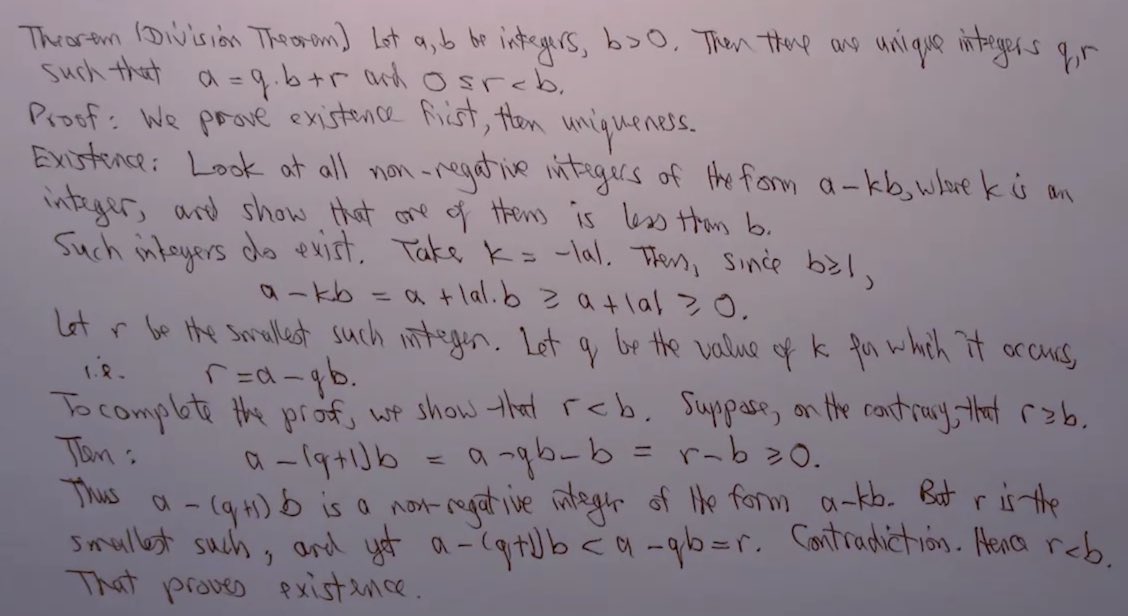 Theorem (Division Theorem) Let a, b be integers, b>0. Then there are unique integers q, r
such that a = q.b+r and 0 ≤ r < b.
Proof: We prove existence first, then uniqueness.
Existence: Look at all non-negative integers of the form a-kb, where k is an
integer, and show that one of them is less than b.
Such integers do exist. Take k = -|a|. Then, since b≥1,
a-kb = a + |a|.b ≥ a+|a| ≥ 0.
Let r be the smallest such integer. Let q be the value of k for which it occurs,
i.e. r = a-qb.
To complete the proof, we show that r<b. Suppose, on the contrary, that r≥b.
Then: a-(q+1)b = a-qb-b = r-b ≥0.
Thus a-(q+1)b is a non-negative integer of the form a-kb. But r is the
smallest such, and yet a-(q+1)b < a-qb=r. Contradiction. Hence r<b.
That proves existence.